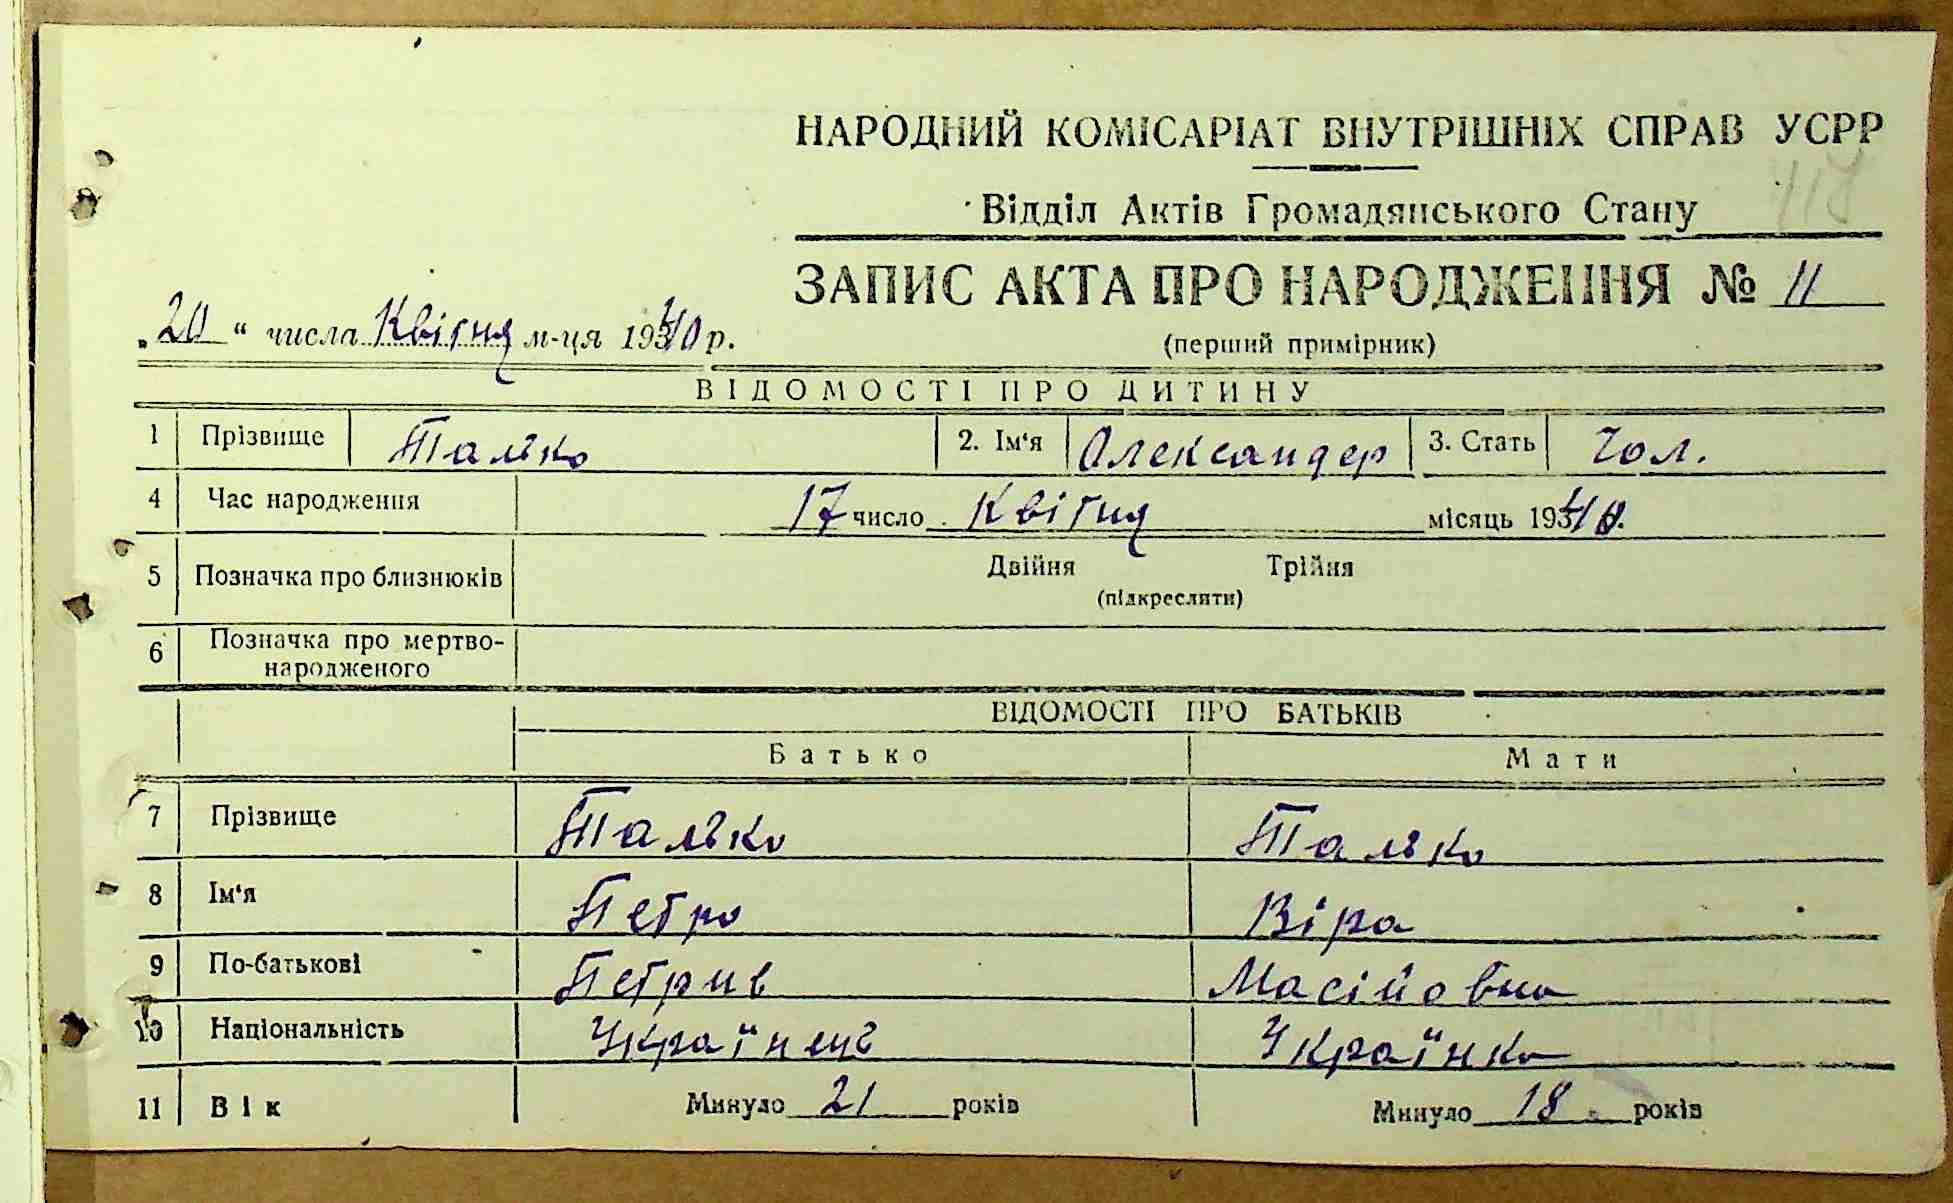 НАРОДНИЙ КОМІСАРІАТ ВНУТРІШНІХ СПРАВ УСРР
117
Відділ Актів Громадянського Стану
ЗАПИС АКТА ПРО НАРОДЖЕННЯ № 11
„20“ числа Квітня м-ця 1940 р.
(перший примірник)
ВІДОМОСТІ ПРО ДИТИНУ
1 Прізвище Талько 2. Ім‘я Олександер 3. Стать Чол.
4 Час народження 17 число Квітня місяць 1940.
5 Позначка про близнюків Двійня Трійня
(підкреслити)
6 Позначка про мертво-
народженого
ВІДОМОСТІ ПРО БАТЬКІВ
Батько Мати
7 Прізвище Талько Талько
8 Ім‘я Петро Віра
9 По-батькові Петрив Масійовна
10 Національність Українець Українка
11 Вік Минуло 21 років Минуло 18 років